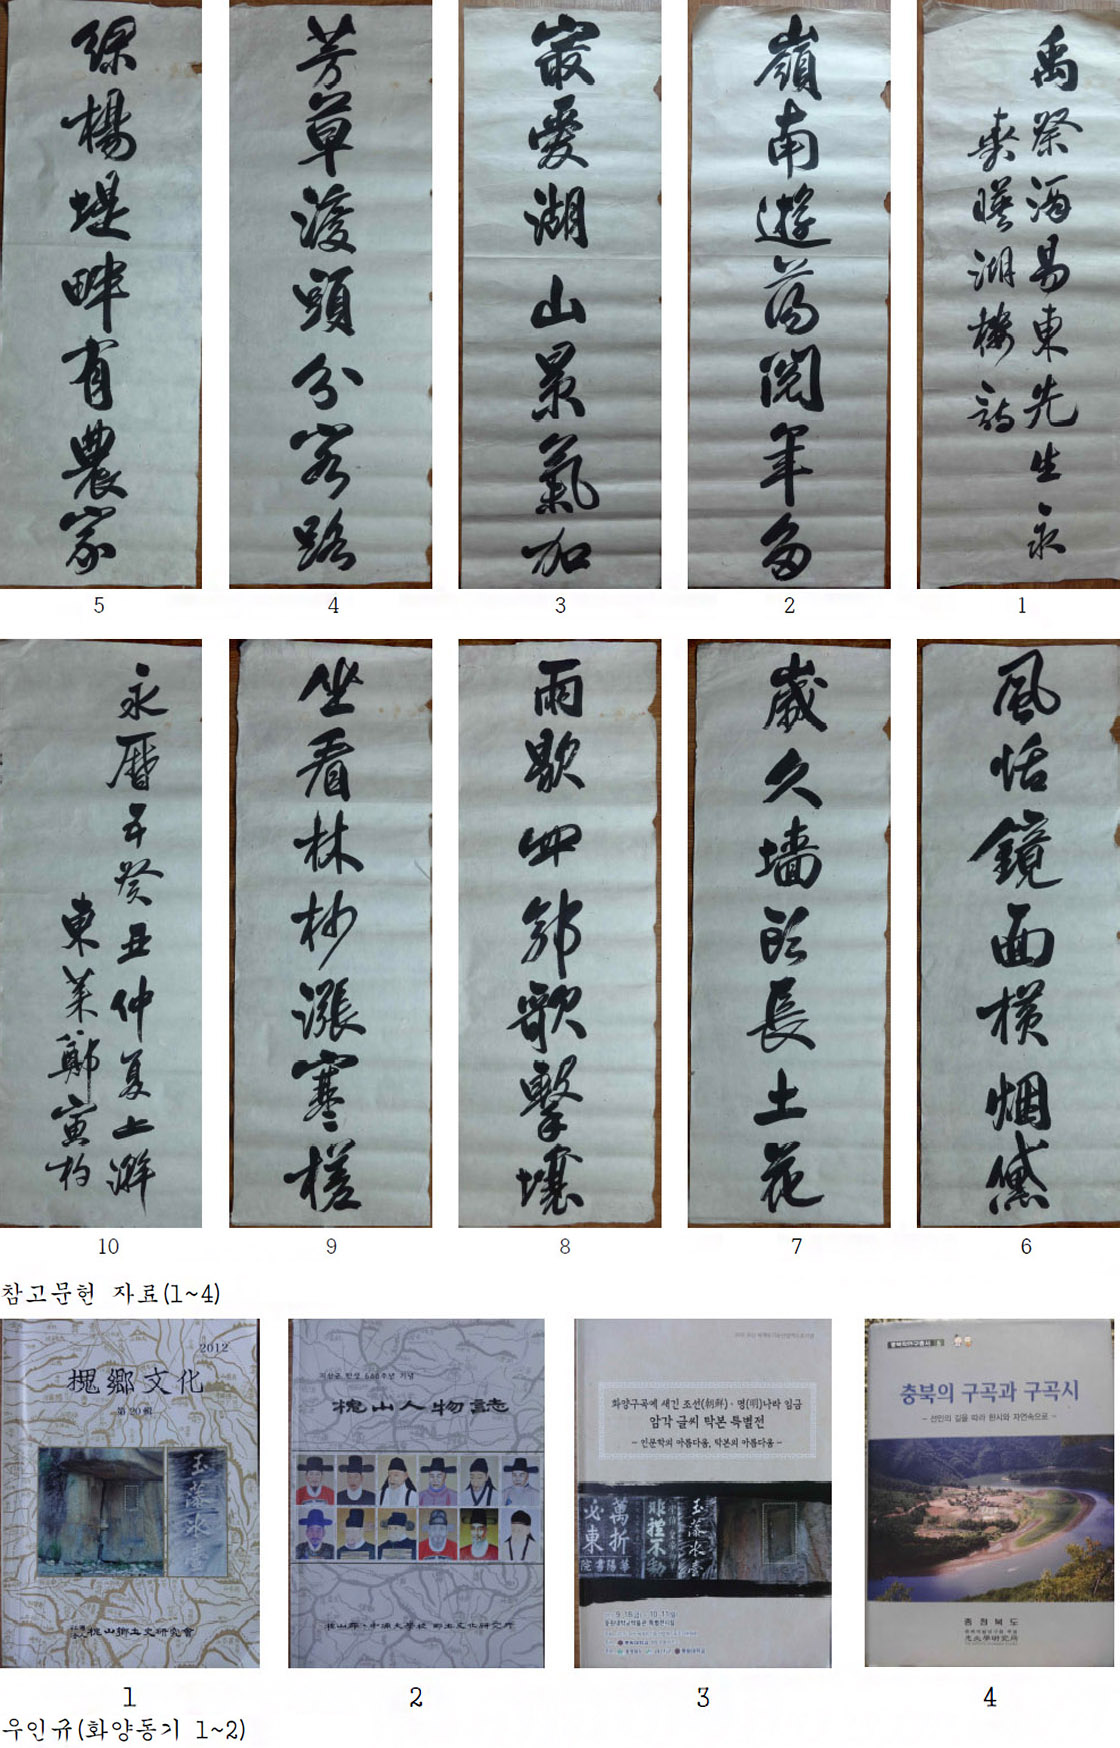 禹祭酒易東先生永
嘉暎湖樓詩
1
嶺南遊蕩閱年多
2
㝡愛湖山景氣加
3
芳草渡頭分客路
4
綠楊堤畔有農家
5
風恬鏡面橫烟黛
6
歲久墻頭長土花
7
雨歇四郊歌擊壤
8
坐看林杪漲寒槎
9
永曆 癸丑仲夏上澣
東萊鄭寅杓
10
참고문헌 자료(1~4)
2012
槐鄕文化
第20輯
玉藻氷壺
槐山鄕土史硏究會
1
槐山人物誌
槐山郡·中原大學校 鄕土文化硏究所
2
화양구곡에 새긴 조선(朝鮮)·명(明)나라 임금
암각 글씨 탁본 특별전
- 인문학의 아름다움, 탁본의 아름다움 -
萬折必東
非禮不動
玉藻氷壺
3
충북의 구곡과 구곡시
- 선인의 길을 따라 한시와 자연속으로 -
4
우인규(화양동기 1~2)